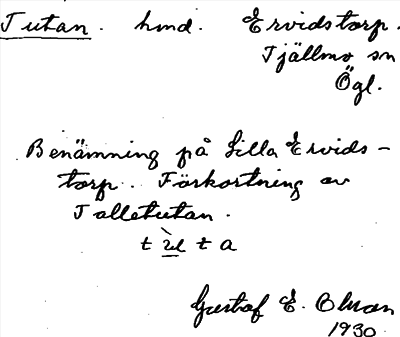 Tutan. hmd. Ervidstorp.
Tjällmo sn
Ögl.
Benämning på Lilla Ervids-
torp. Förkortning av
Talletutan.
Gustaf E.
1930.